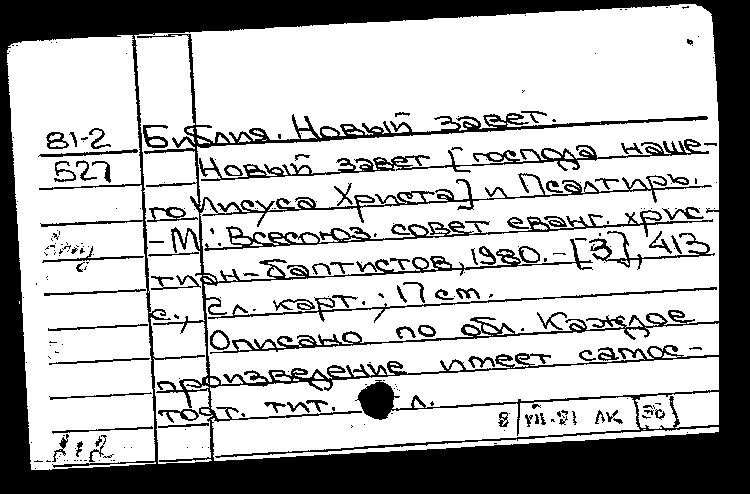 81-2 Библия. Новый завет.
527 Новый завет [господа наше-
го Иисуса Христа] и Псалтирь.
-М.: Всесоюз. совет еванг. хрис-
тиан-баптистов, 1980.-[3], 413
с., 2 л. карт.; 17 cm.
Описано по обл. Каждое
произведение имеет самос-
тоят. тит. л.
8/VII-81 ЛК [36]